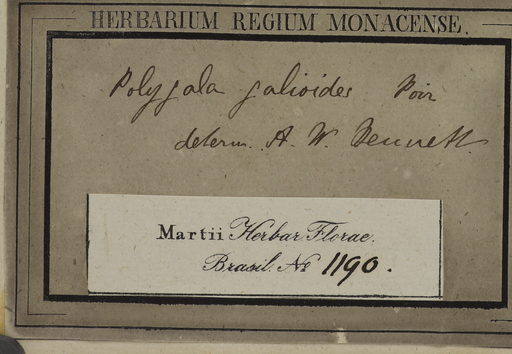 HERBARIUM REGIUM MONACENSE.
Polygala galioides Poir
determ. A. W. Bennett.
Martii Herbar. Florae.
Brasil. No 1190.